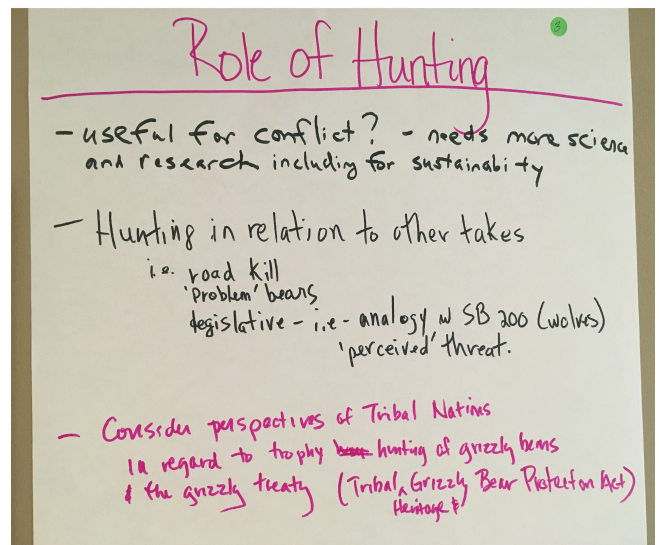 3
Role of Hunting
- useful for conflict? - needs more science
and research including for sustainability
- Hunting in relation to other takes
i.e. road kill
'Problem' bears
legislative - i.e - analogy w SB 200 (wolves)
'perceived' threat.
- Consider perspectives of Tribal Nations
in regard to trophy hunting of grizzly bears
& the grizzly treaty (Tribal ^ Grizzly Bear Protection Act)
Heritage &